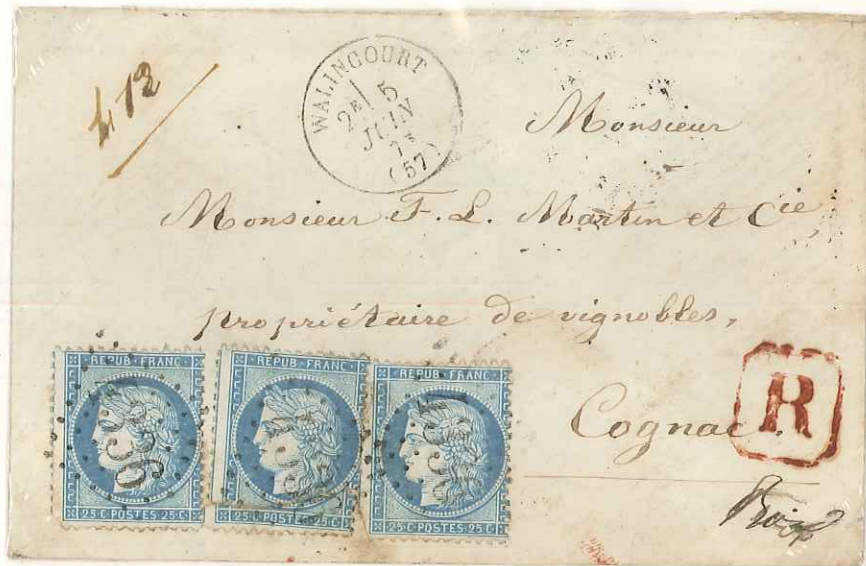 412
WALINCOURT
2E 5
JUIN
73
(57)
Monsieur
Monsieur F. L. Martin et Cie,
propriétaire de vignobles,
Cognac.
R
REPUB. FRANC.
25 C. POSTES 25 C.
REPUB. FRANC.
25 C. POSTES 25 C.
REPUB. FRANC.
25 C. POSTES 25 C.